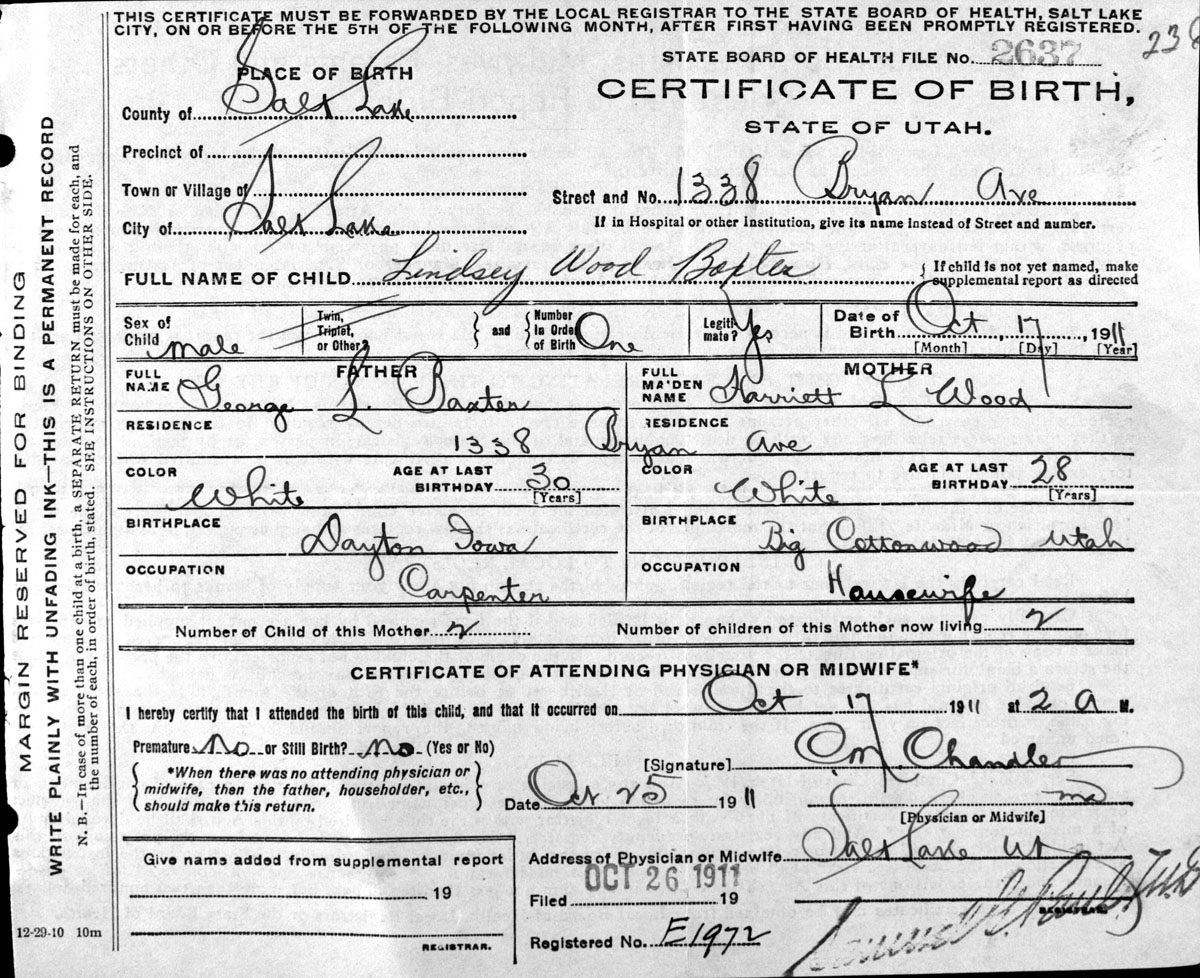 THIS CERTIFICATE MUST BE FORWARDED BY THE LOCAL REGISTRAR TO THE STATE BOARD OF HEALTH, SALT LAKE
CITY, ON OR BEFORE THE 5TH OF THE FOLLOWING MONTH, AFTER FIRST HAVING BEEN PROMPTLY REGISTERED.
STATE BOARD OF HEALTH FILE No. 2637
238
PLACE OF BIRTH
CERTIFICATE OF BIRTH,
STATE OF UTAH.
County of Salt Lake
Precinct of
Town or Village of
City of Salt Lake
Street and No. 1338 Bryan Ave
If in Hospital or other Institution, give its name instead of Street and number.
FULL NAME OF CHILD Lindsey Wood Baxter
If child is not yet named, make
supplemental report as directed
Sex of Child male
Twin, Triplet, or Other?
and
Number in Order of Birth One
Legiti-mate? Yes
Date of Birth Oct, 17, 1911
[Month] [Day] [Year]
FATHER
FULL NAME George L. Baxter
MOTHER
FULL MAIDEN NAME Harriett L Wood
RESIDENCE
RESIDENCE
1338 Bryan Ave
COLOR White
AGE AT LAST BIRTHDAY 30
[Years]
COLOR White
AGE AT LAST BIRTHDAY 28
[Years]
BIRTHPLACE Dayton Iowa
BIRTHPLACE Big Cottonwood Utah
OCCUPATION Carpenter
OCCUPATION Housewife
Number of Child of this Mother 2
Number of children of this Mother now living 2
CERTIFICATE OF ATTENDING PHYSICIAN OR MIDWIFE*
I hereby certify that I attended the birth of this child, and that it occurred on Oct 17 1911 at 2 A M.
Premature No or Still Birth? No (Yes or No)
[Signature] C.M. Chandler
*When there was no attending physician or
midwife, then the father, householder, etc.,
should make this return.
Date Oct 25 1911
md
[Physician or Midwife]
Give name added from supplemental report
19
REGISTRAR.
Address of Physician or Midwife Salt Lake Ut
OCT 26 1911
Filed 19
REGISTRAR.
Registered No. E1972
12-29-10 10m
MARGIN RESERVED FOR BINDING
WRITE PLAINLY WITH UNFADING INK—THIS IS A PERMANENT RECORD
N. B.—In case of more than one child at a birth, a SEPARATE RETURN must be made for each, and
the number of each, in order of birth, stated. SEE INSTRUCTIONS ON OTHER SIDE.